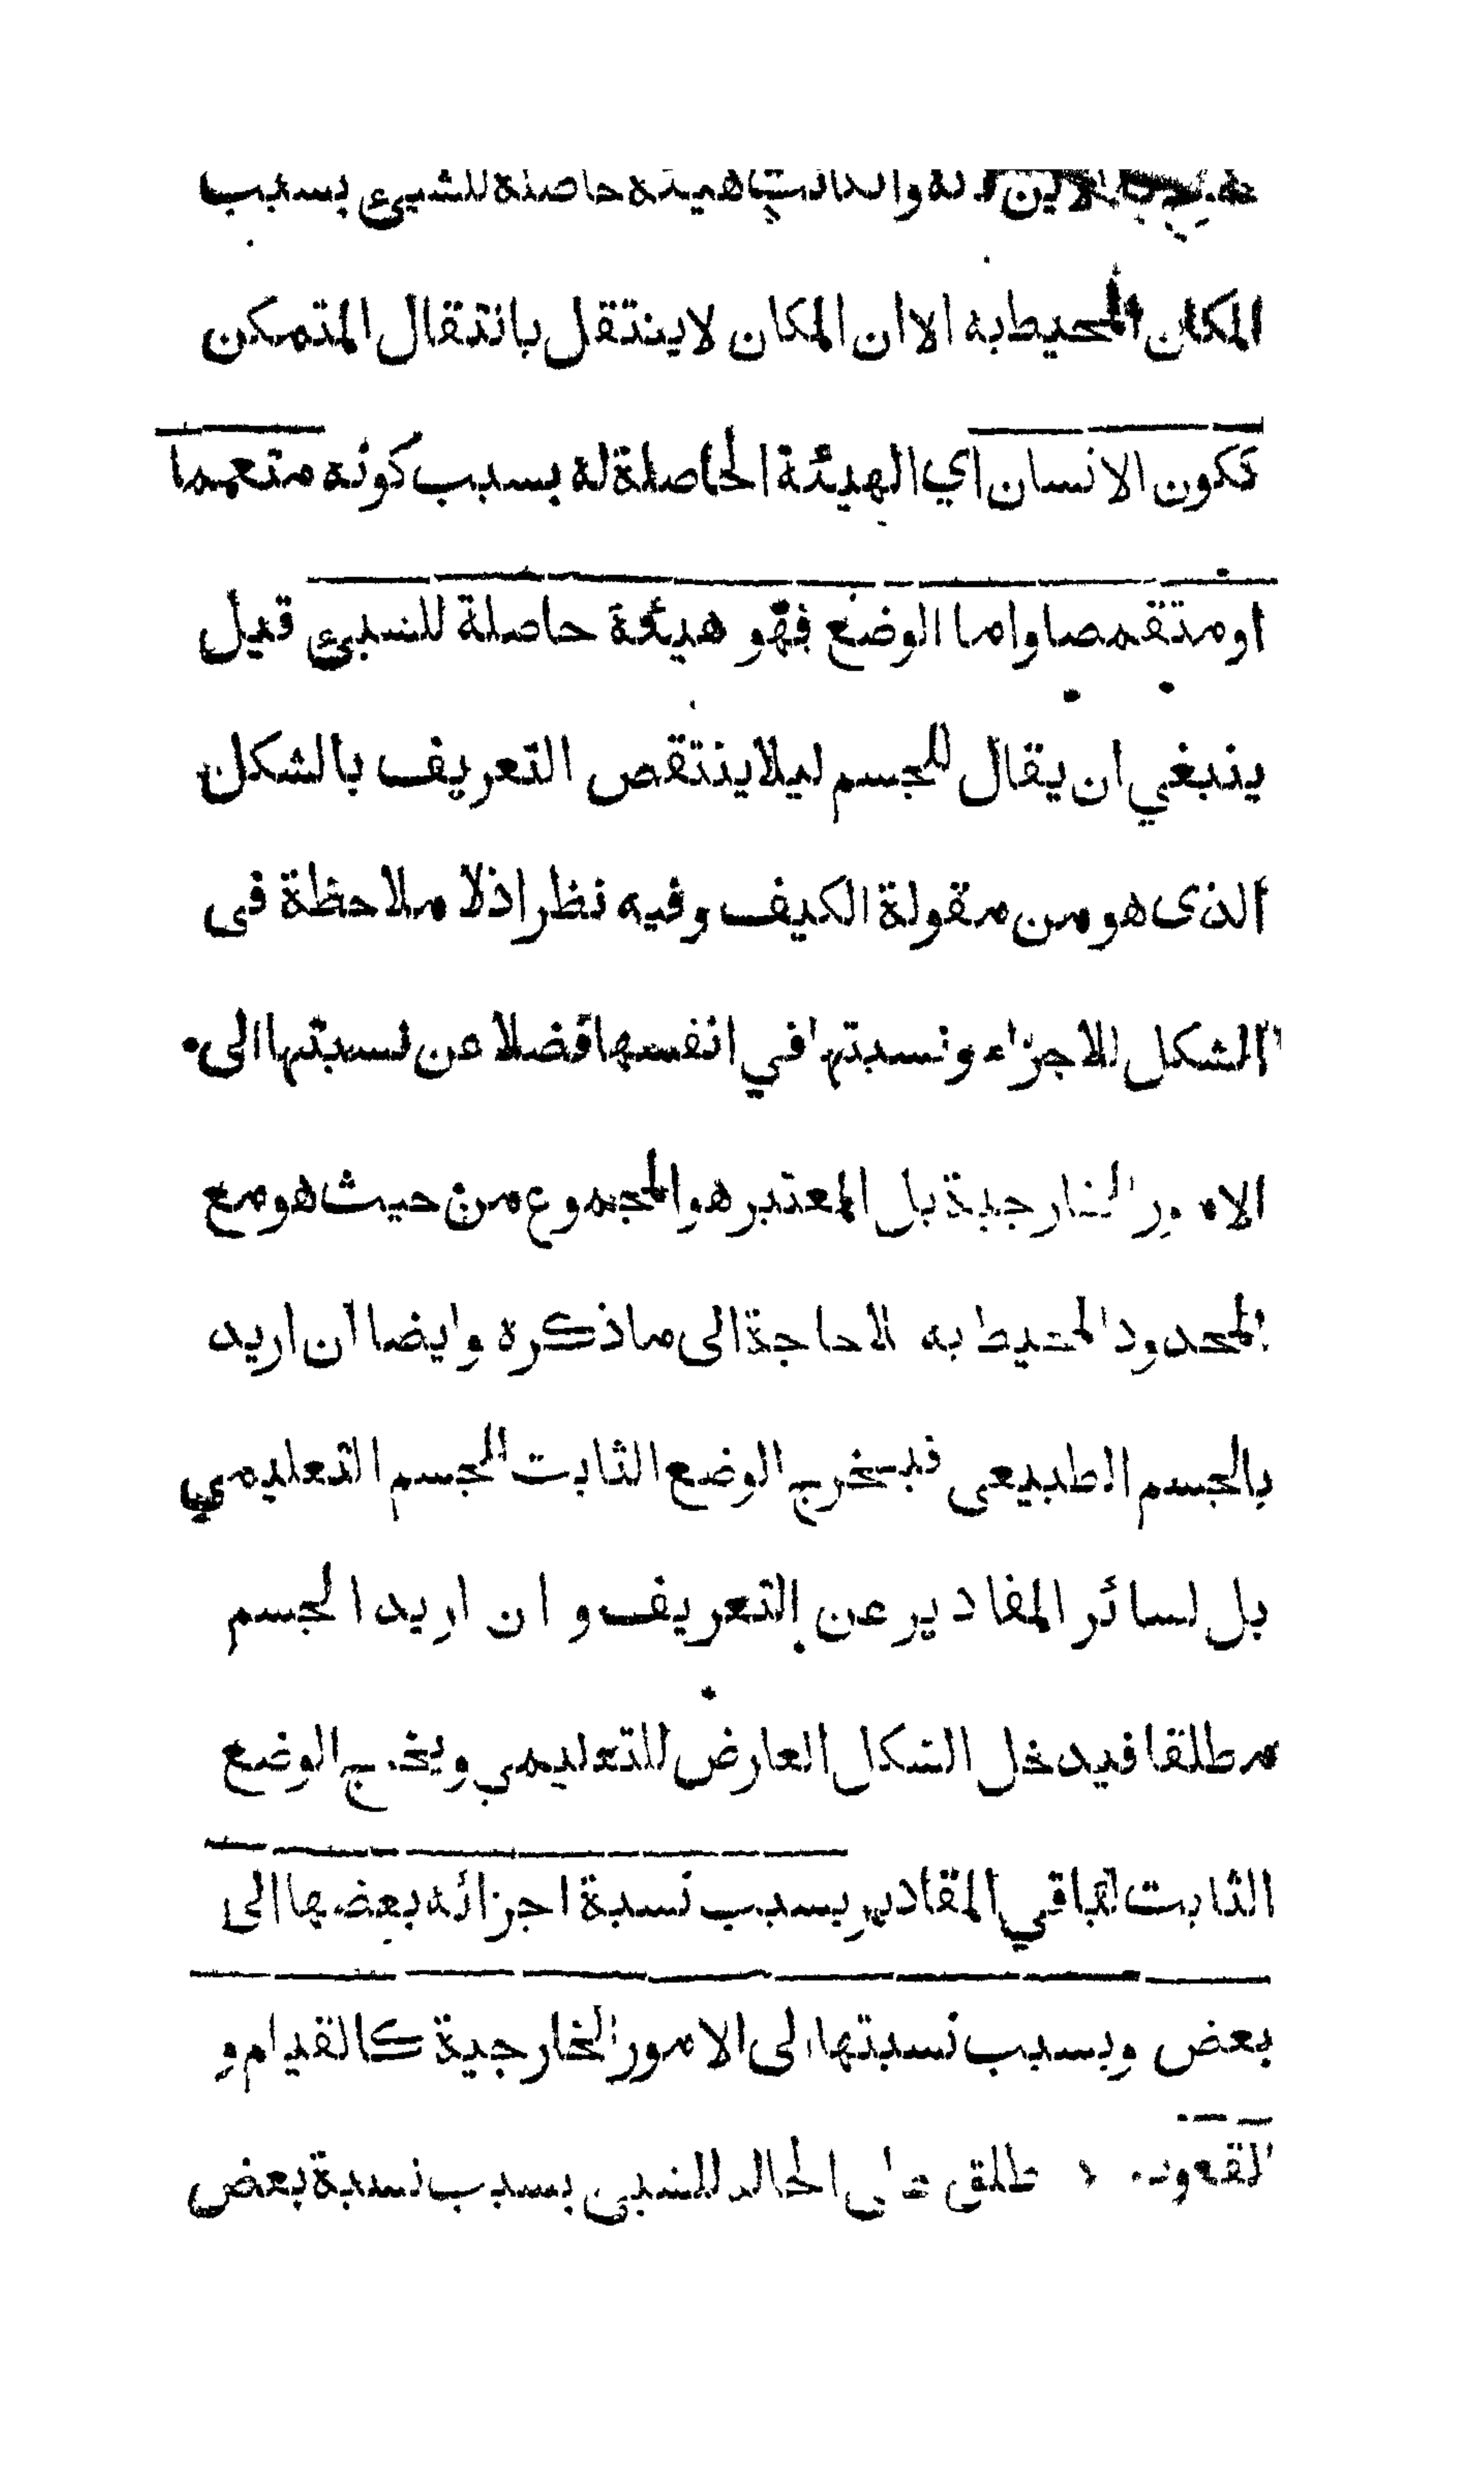 الاين لانه وان كانت هيئة حاصلة للشيئ بسبب
المكان المحيط به الا ان المكان لا ينتقل بانتقال المتمكن
ككون الانسان اي الهيئة الحاصلة له بسبب كونه متعمما
او متقمصا واما الوضع فهو هيئة حاصلة للشيئ قيل
ينبغي ان يقال للجسم ليلا ينتقص التعريف بالشكل
الذى هو من مقولة الكيف وفيه نظر اذ لا ملاحظة فى
الشكل للاجزاء ونسبتها في انفسها فضلا عن نسبتها الى
الامور الخارجية بل المعتبر هو المجموع من حيث هو مع
الحدود المحيط به لا حاجة الى ما ذكره وايضا ان اريد
بالجسم الطبيعى فيخرج الوضع الثابت للجسم التعليمي
بل لسائر المقادير عن التعريف و ان اريد الجسم
مطلقا فيدخل الشكل العارض للتعليمي ويخرج الوضع
الثابت لباقي المقادير بسبب نسبة اجزائه بعضها الى
بعض وبسبب نسبتها الى الامور الخارجية كالقيام و
القعود طلق على الحالة للشيئ بسبب نسبة بعض